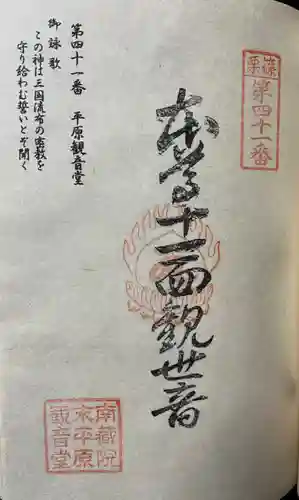 篠栗
第四十一番
本尊十一面観世音
第四十一番 平原観音堂
御詠歌
この神は三国流布の密教を
守り給わむ誓いとぞ聞く
南蔵院
平原
観音堂